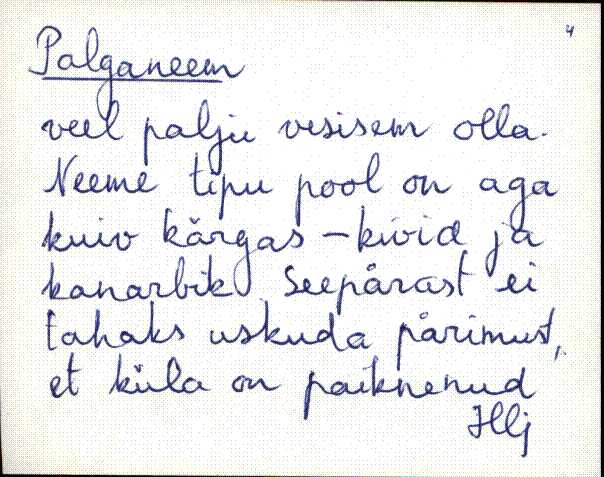 4
Palganeem
veel palju vesisem olla.
Neeme tipu pool on aga
kuiv kärgas - kivid ja
kanarbik. Seepärast ei
tahaks uskuda pärimust,
et küla on paiknenud
Hlj